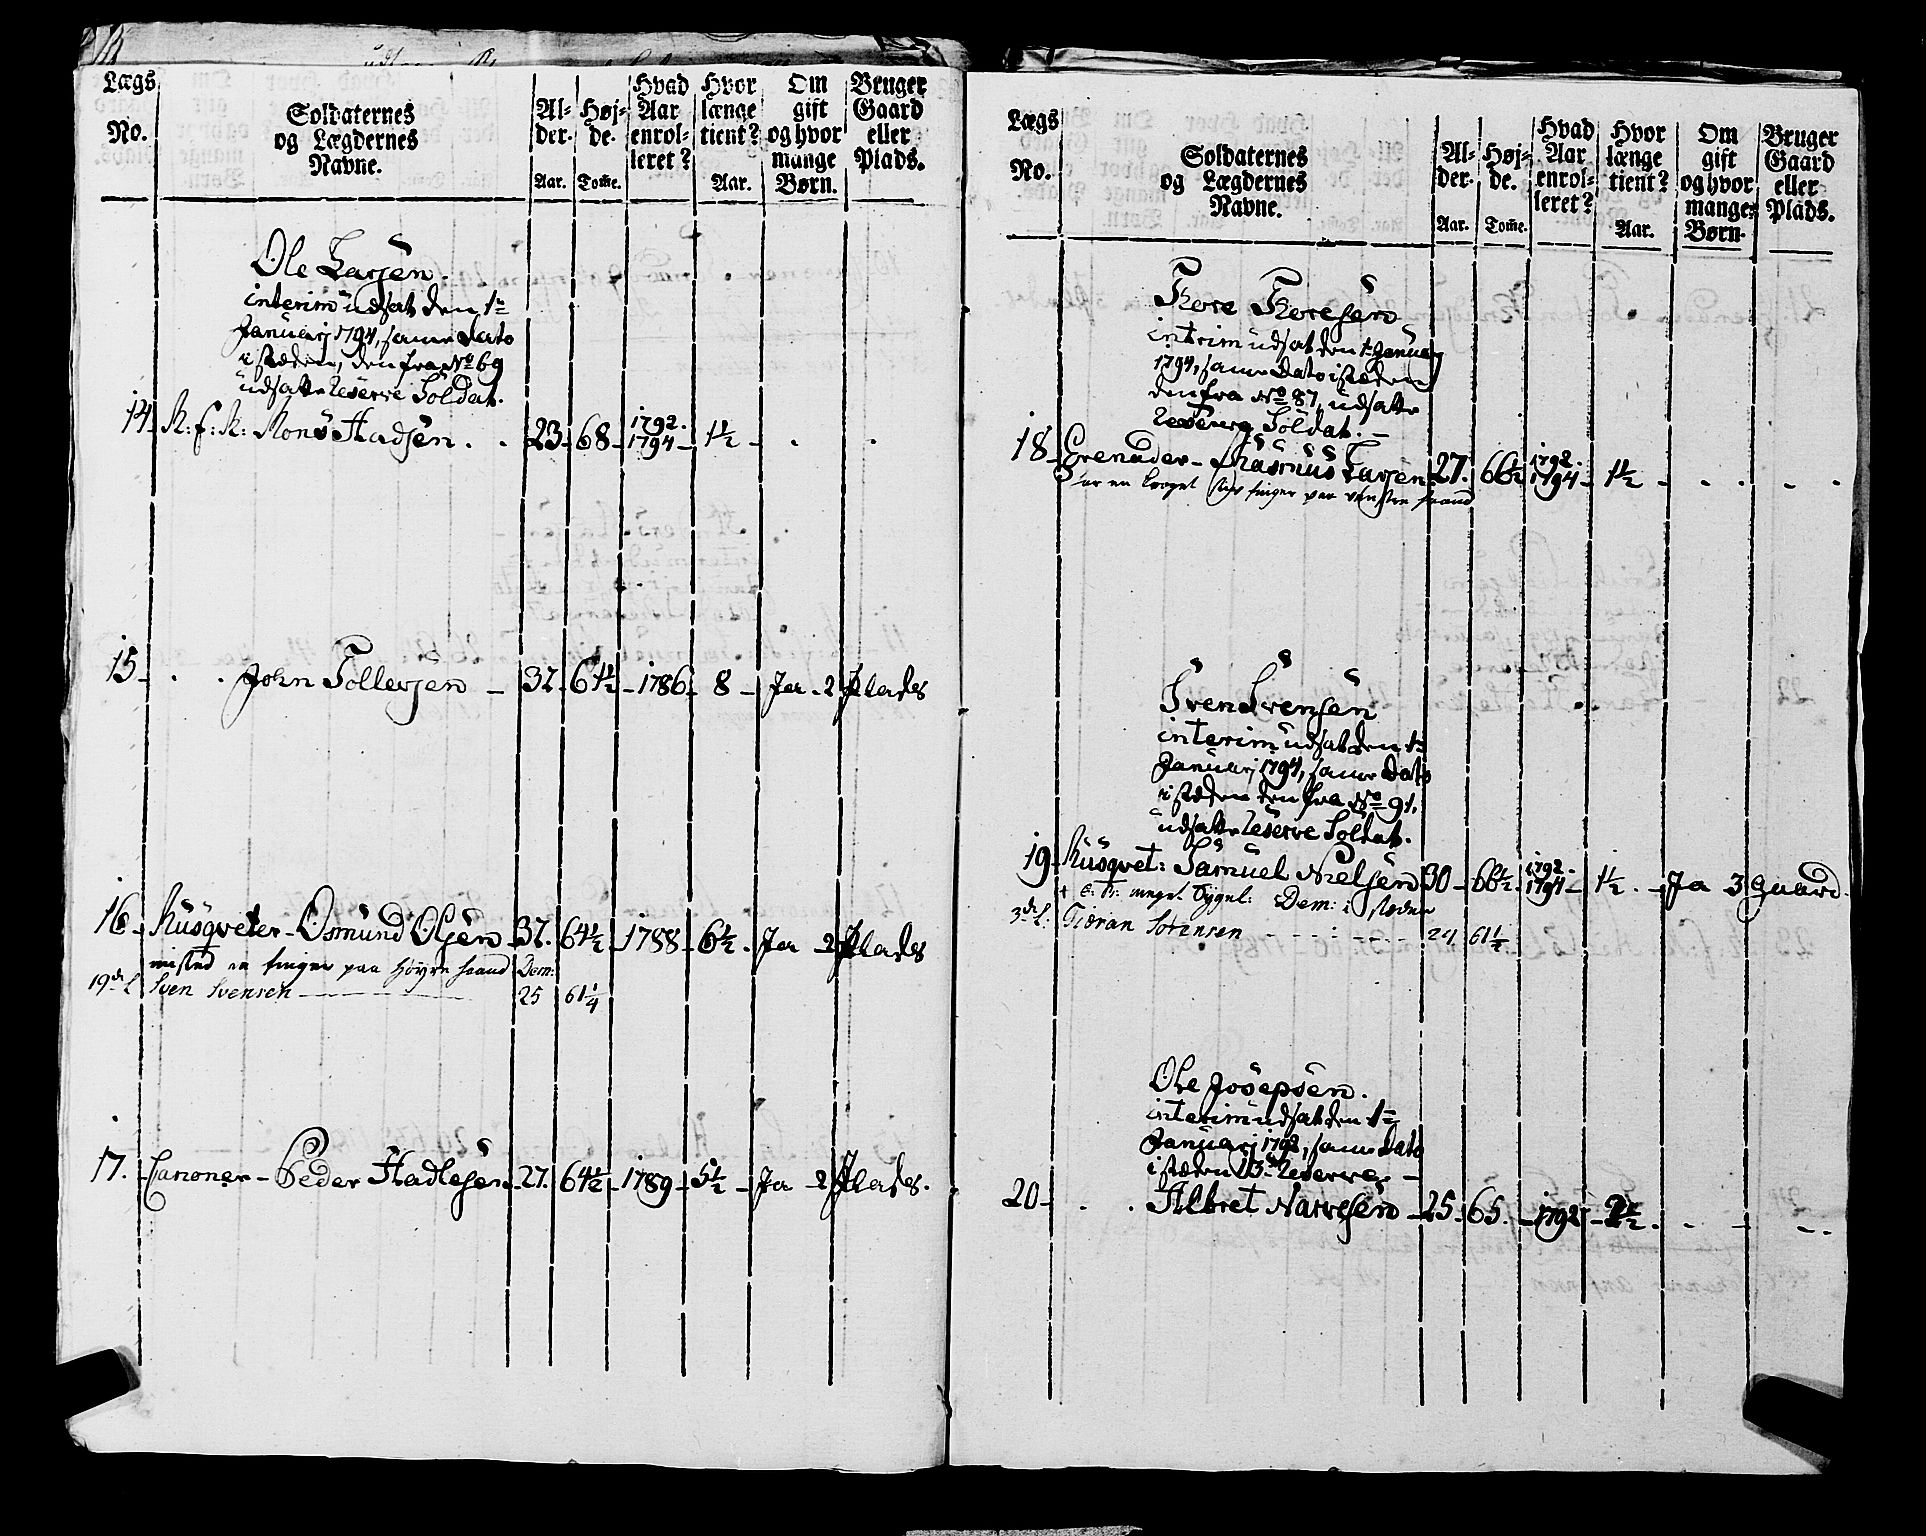 Lægs No.
Soldaternes og Lægdernes Navne.
Al-der. Aar.
Høj-de. Tom̄e.
Hvad Aar enrol-leret?
Hvor længe tient? Aar.
Om gift og hvor mange Børn.
Bruger Gaard eller Plads.
Ole Larsen.
interim udsat den 1te
Januarj 1794, samme Dato
i stæden, den fra No 69
udsatte Reserve Soldat.
14 Mons Hadsen. 23 68 1792. 1794 1½
15 John Tollevsen 37 64½ 1786 8 Ja 2 Plads
16 Musqveter Osmund Olsen 37. 64½ 1788 6½ Ja 2 Plads
misted en finger paa høyre haand Dem:
19de L Sven Svensen 25 61¼
17. Canoner Peder Hadlesen 27. 64½ 1789 5½ Ja 2 Plads.
Lægs No.
Soldaternes og Lægdernes Navne.
Al-der. Aar.
Høj-de. Tom̄e.
Hvad Aar enrol-leret?
Hvor længe tient? Aar.
Om gift og hvor mange Børn.
Bruger Gaard eller Plads.
Tore Toresen
interim udsat den 1te Januarj
1794, samme Dato i stæden
den fra No 87, udsatte
Soldat.
18 Grenader Rasmus Larsen 27. 66½ 1792. 1794 1½
finger paa venstre haand
Sven Svensen
interim udsat den 1te
Januarj 1794, samme Dato
i stæden den fra No 91.
udsatte Reserve Soldat.
19 Musqvet: Samuel Nielsen 30 66½ 1792. 1794 1½ Ja 3 Gaard.
meget Sygel: Dem: i stæden
3de L. Giæran Sørensen 24 61½
Ole Josepsen.
interim udsat den 1te
Januarj 1792, samme Dato
i stæden Reserve
20 Albret Narvesen 25 65. 1792 2½